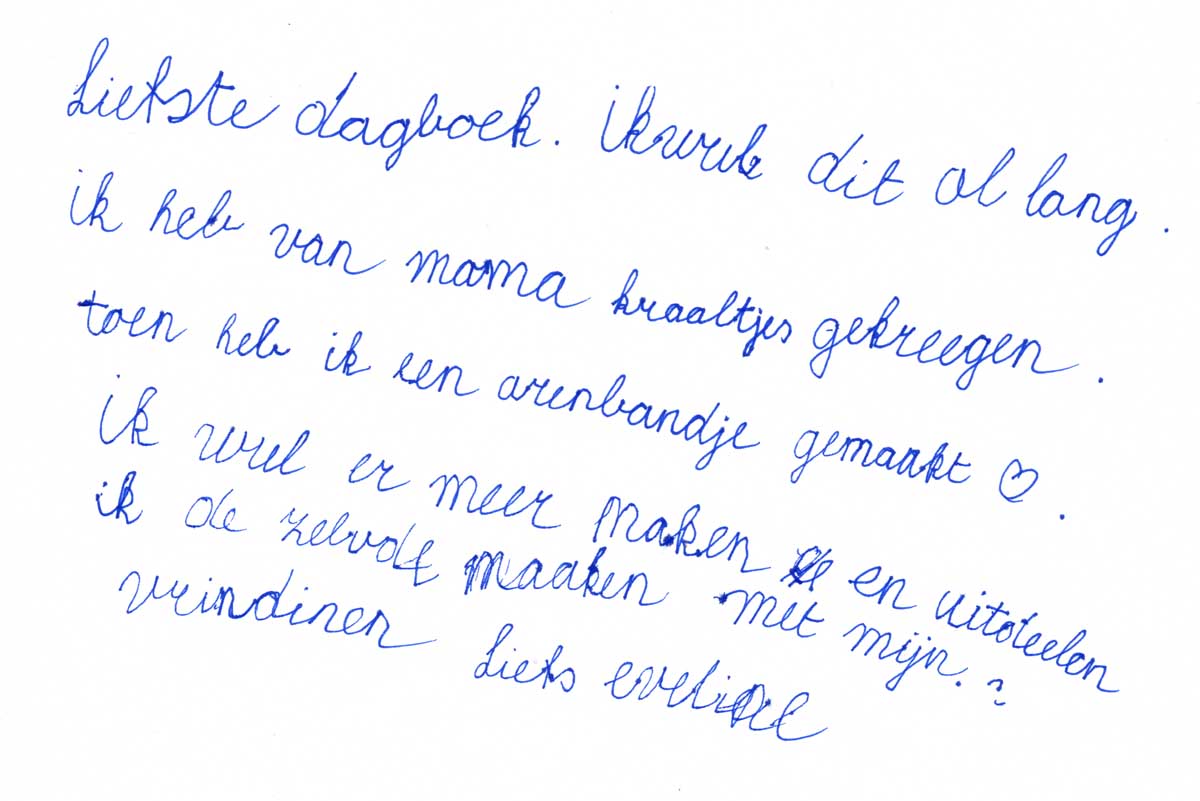 Liefste dagboek. ik wil dit al lang.
ik heb van mama kraaltjes gekreegen.
toen heb ik een arenbandje gemaakt ♡.
ik wil er meer maken en uitdeelen
ik de zelvde maaken met mijn.?
vrindinen Liefs eveline